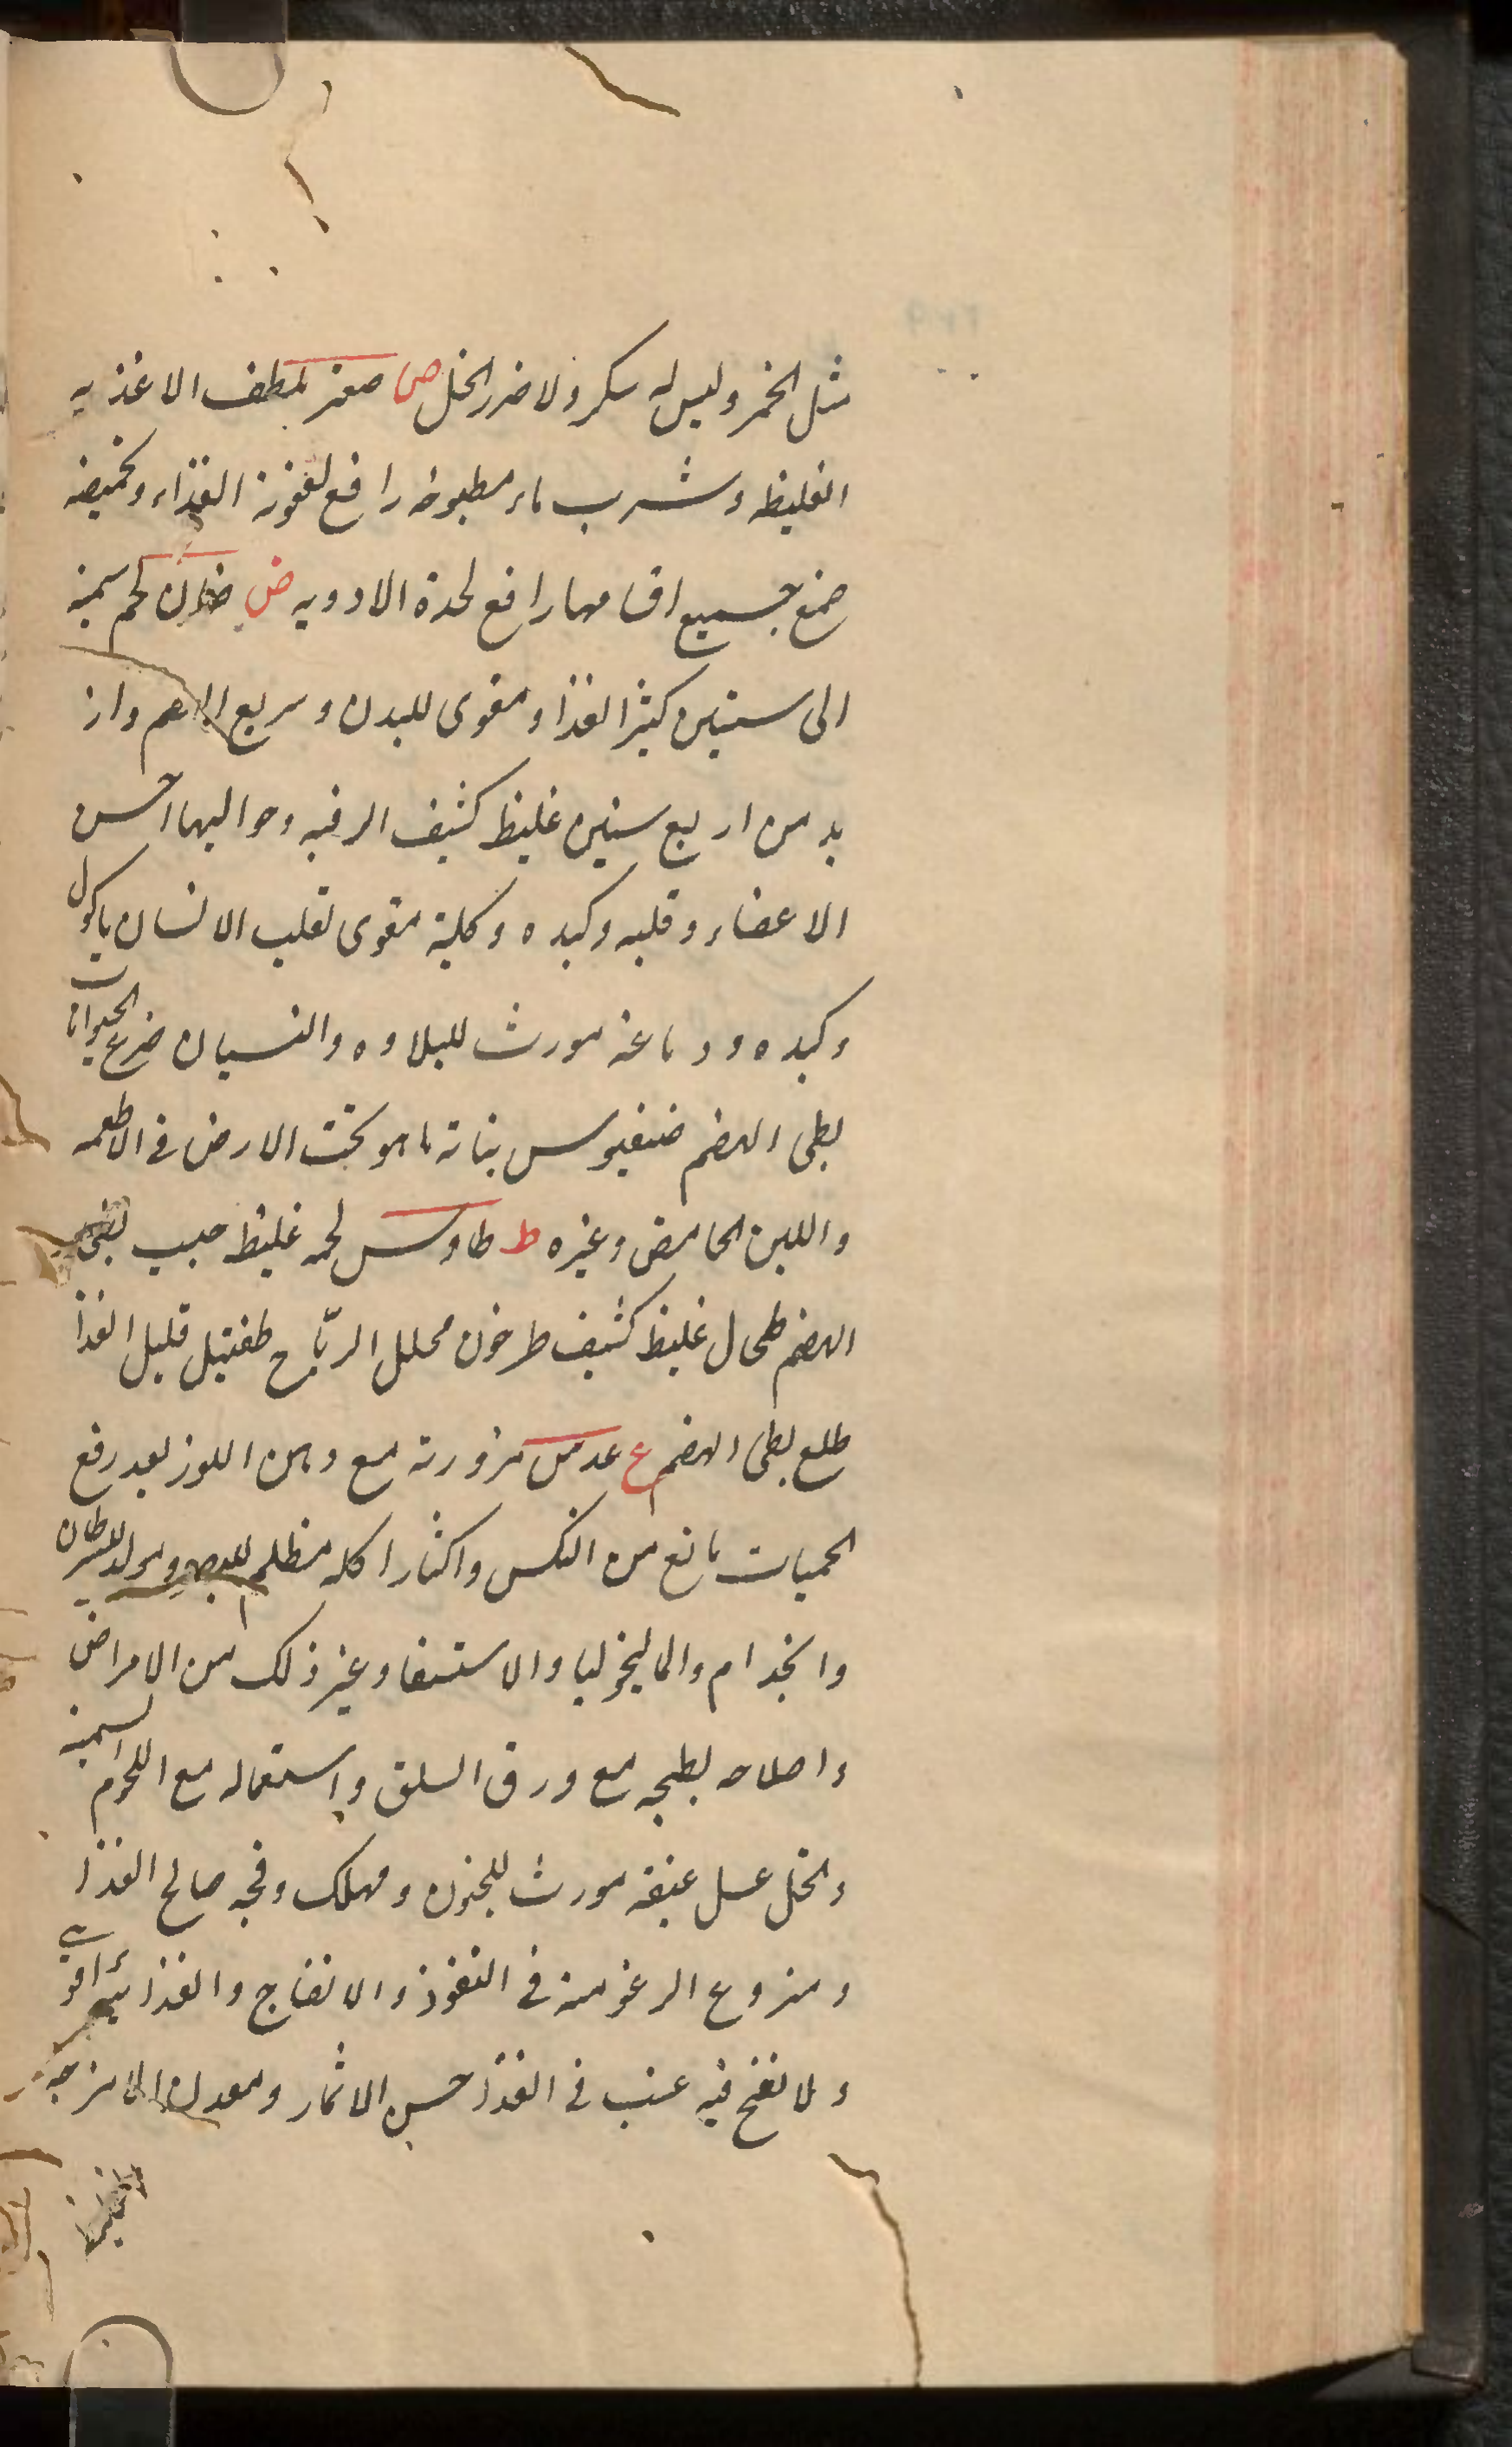 مثل الخمر وليس له سكر ولا ضرر الخل ص صعتر ملطف الاغذيه
الغليظه وشرب ماء مطبوخه رافع لعفونة الغذاء وتحميضه
صمغ جميع اقسامها رافع لحدة الادويه ض ضان لحم سمينه
الى سنتين كثير الغذا ومقوى للبدن وسريع الهضم واز
يد من اربع سنين غليظ كثيف الرقبه وحواليها احسن
الاعضاء وقلبه وكبده وكلية مقوى لقلب الانسان ياكول
وكبده ودماغه مورث للبلاوه والنسيان ضرع الحيوانات
بطى الهضم ضنغيوس بناته ما هو تحت الارض فى الاطعمه
واللبن الحامض وغيره ط طاوس لحمه غليظ صبب بطى
الهضم طحال غليظ كثيف طرخون محلل الرياح طفتيل قليل الغذا
طلع بطى الهضم ع عدس مزورته مع دهن اللوز بعد رفع
الحميات مانع من النكس واكثار اكله مظلم للبصر ومولد للسرطان
والجذام والماليخوليا والاستسقا وغير ذلك من الامراض
واصلاحه بطبخه مع ورق السلق واستعماله مع اللحوم السمينه
والخل عسل عتيقه مورث للجنون ومهلك وفجه صالح الغذا
ومنزوع الرغوة منه فى النفوذ والانضاج والغذائية اقوى
ولا نفخ فيه عنب فى الغذا حسن الاثمار ومعدل الامزجه